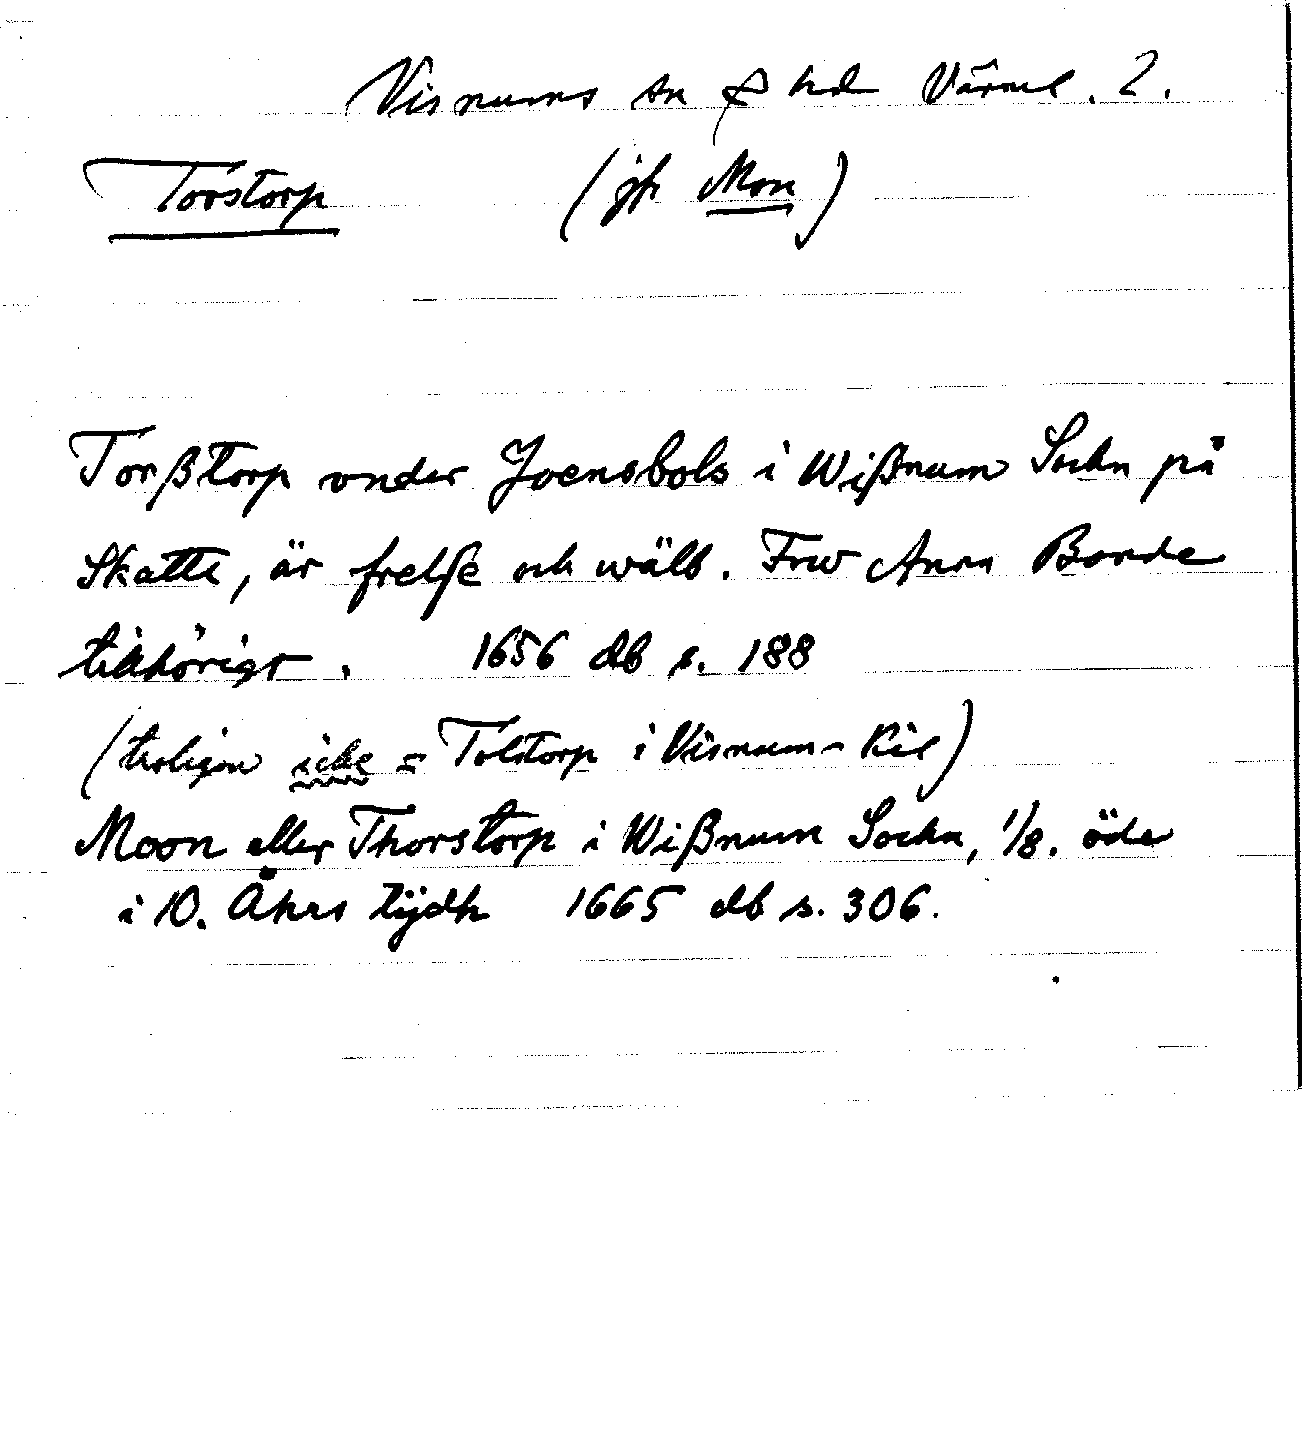 Visnums sn & hd Värml. 2.
Torstorp (jfr Mon)
Torßtorp vnder Joensbols i Wißnum Sochn på
Skatte, är frelße och wälb. Frw Anna Bonde
tillhörigt. 1656 db s. 188
(troligen icke = Tolstorp i Visnum-Kil)
Moon eller Thorstorp i Wißnum Sochn, 1/8. öde
i 10. Åhrs tijdh 1665 db s. 306.